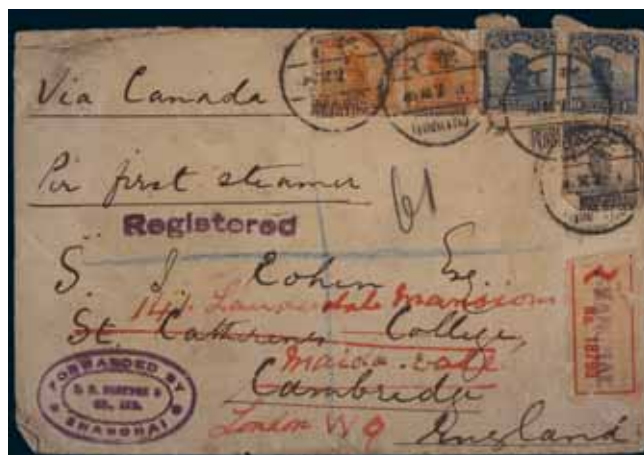 Via Canada
Per first steamer
Registered
61
S. J. Cohen Esq.
141. Lauderdale Mansions
St. Catherines College,
Maida-vale
Cambridge
London W 9
England
FORWARDED BY
CO., LTD.
SHANGHAI
R
SHANGHAI
No